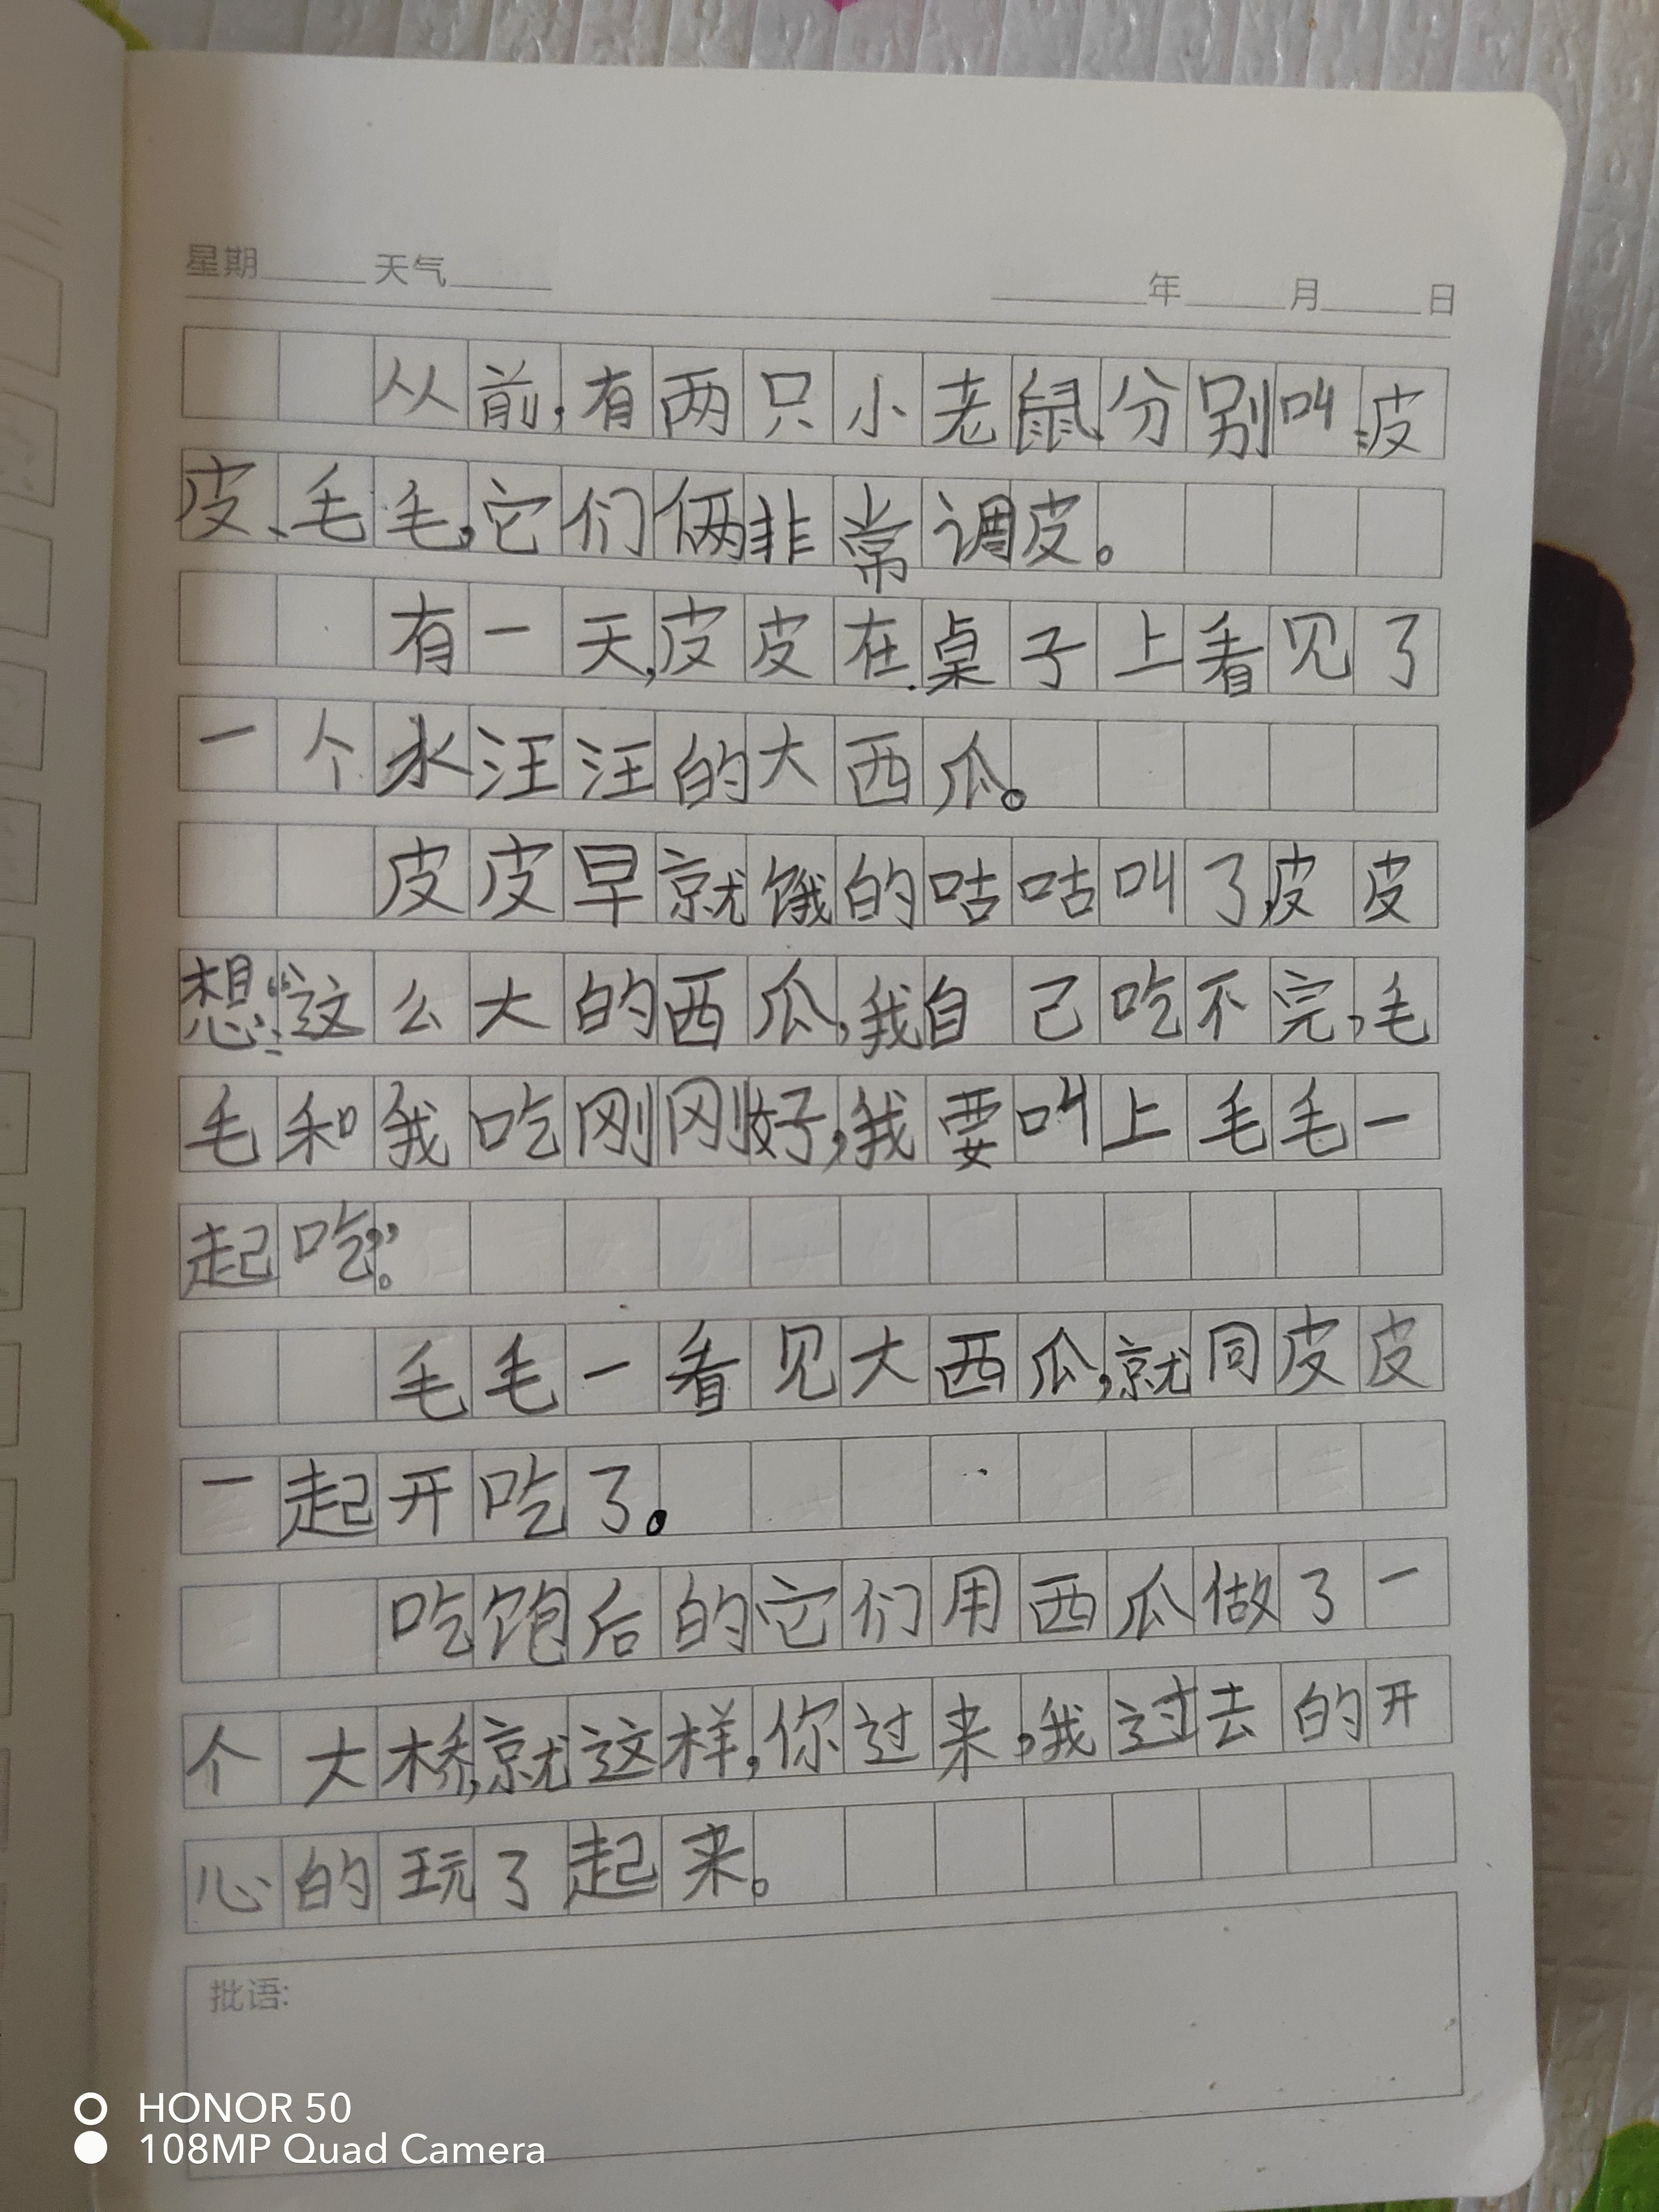 星期 天气 年 月 日
从前,有两只小老鼠,分别叫:皮
皮、毛毛,它们俩非常调皮。
有一天,皮皮在桌子上看见了
一个水汪汪的大西瓜。
皮皮早就饿的咕咕叫了,皮皮
想:“这么大的西瓜,我自己吃不完,毛
毛和我吃刚刚好,我要叫上毛毛一
起吃。”
毛毛一看见大西瓜,就同皮皮
一起开吃了。
吃饱后的它们用西瓜做了一
个大桥,就这样,你过来,我过去的开
心的玩了起来。
批语:
HONOR 50
108MP Quad Camera